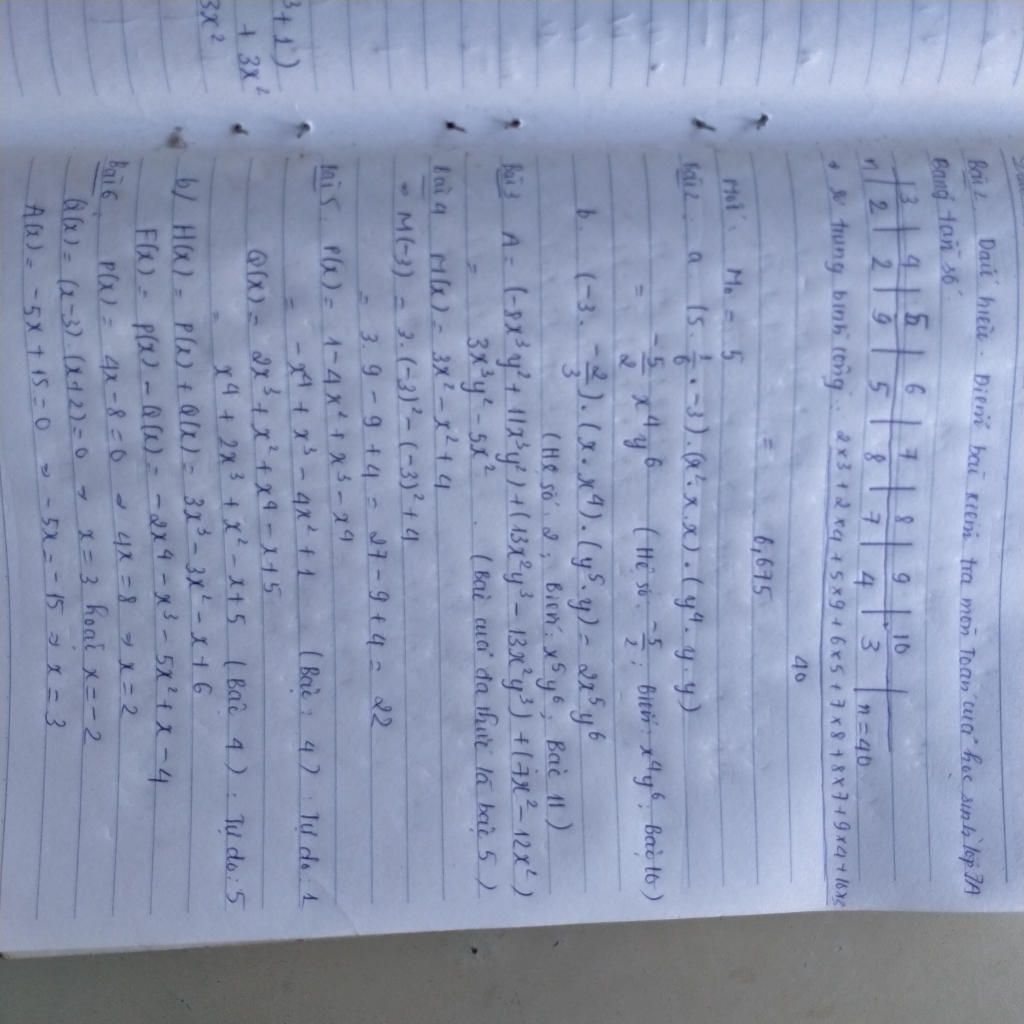 3+1)
+ 3x²
3x²
Bài 1. Dấu hiệu. Điểm bài kiểm tra môn Toán của học sinh lớp 7A
Bảng tần số.
| 3 | 4 | 5 | 6 | 7 | 8 | 9 | 10 |
n | 2 | 2 | 9 | 5 | 8 | 7 | 4 | 3 | n = 40
+ Số trung bình cộng: 2x3 + 2x4 + 5x9 + 6x5 + 7x8 + 8x7 + 9x4 + 10x3
40
= 6,675
Mốt: M₀ = 5
Bài 2. a (5 . 1/6 . -3) . (x². x. x) . (y⁴. y. y)
= -5/2 x⁴y⁶ (Hệ số: -5/2; Biến: x⁴y⁶; Bậc 10)
b. (-3 . -2/3) . (x. x⁴) . (y⁵. y) = 2x⁵y⁶
(Hệ số: 2; Biến: x⁵y⁶; Bậc 11)
Bài 3 A = (-8x³y² + 11x³y²) + (13x²y³ - 13x²y³) + (7x² - 12x²)
= 3x³y² - 5x². (Bậc của đa thức là bậc 5)
Bài 4 M(x) = 3x² - x² + 4
⇒ M(-3) = 3.(-3)² - (-3)² + 4
= 3. 9 - 9 + 4 = 27 - 9 + 4 = 22
Bài 5. P(x) = 1 - 4x² + x³ - x⁴
= -x⁴ + x³ - 4x² + 1 (Bậc: 4) : Tự do: 1
Q(x) = 2x³ + x² + x⁴ - x + 5
= x⁴ + 2x³ + x² - x + 5 (Bậc 4) : Tự do: 5
b/ H(x) = P(x) + Q(x) = 3x³ - 3x² - x + 6
F(x) = P(x) - Q(x) = -2x⁴ - x³ - 5x² + x - 4
Bài 6. P(x) = 4x - 8 = 0 ⇒ 4x = 8 ⇒ x = 2
Q(x) = (x-3)(x+2) = 0 ⇒ x = 3 hoặc x = -2
A(x) = -5x + 15 = 0 ⇒ -5x = -15 ⇒ x = 3